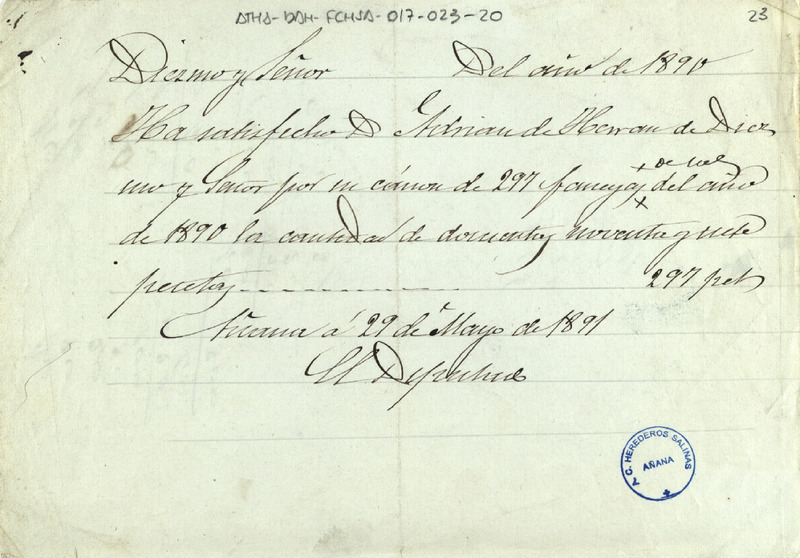 ATHA-DAH-FCHSA-017-023-20
23
Diezmo y Señor Del año de 1890
Ha satisfecho D Adrian de Herran de Diez
mo y Señor por su cánon de 297 fanegas del año
de sal
de 1890 la cantidad de doscientas noventa y siete
pesetas 297 pets
Añana á 29 de Mayo de 1891
El
G. HEREDEROS SALINAS
AÑANA